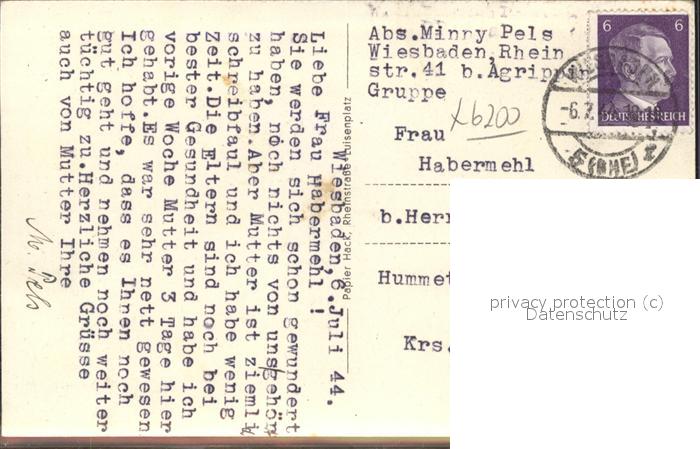 Wiesbaden,6.Juli 44.
Liebe Frau Habermehl !
Sie werden sich schon gewundert
haben, noch nichts von uns gehört
zu haben.Aber Mutter ist ziemli
schreibfaul und ich habe wenig
Zeit.Die Eltern sind noch bei
bester Gesundheit und habe ich
vorige Woche Mutter 3 Tage hier
gehabt.Es war sehr nett gewesen
Ich hoffe, dass es Ihnen noch
gut geht und nehmen noch weiter
tüchtig zu.Herzliche Grüsse
auch von Mutter Ihre
M. Pels
Papier Hack, Rheinstraße Luisenplatz
Abs.Minny Pels
Wiesbaden,Rhein
str.41 b.Agrippin
Gruppe
x6200
Frau
Habermehl
b.Herr
Hummet
Krs.
6 6
DEUTSCHES REICH
-6.7.
privacy protection (c)
Datenschutz